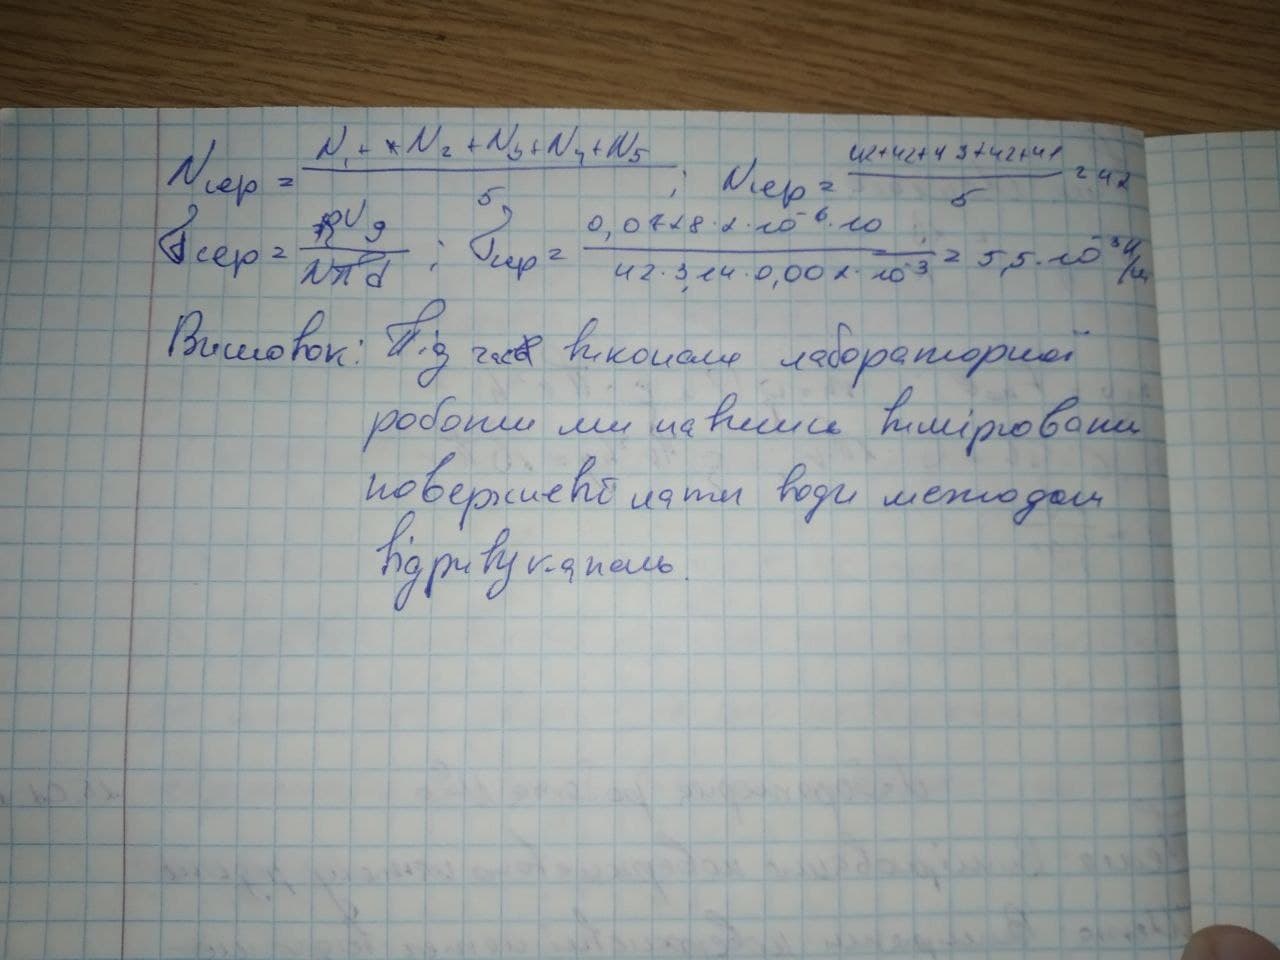 Nсер = (N₁ + N₂ + N₃ + N₄ + N₅)/5 ; Nсер = (42+42+43+42+41)/5 = 42
σсер = ρVg/Nπd ; σсер = (0,0728·2·10⁻⁶·10)/(42·3,14·0,002·10⁻³) = 5,5·10⁻³ Н/м
Висновок: Під час виконання лабораторної
роботи ми навчились вимірювати
поверхневі натяг води методом
відриву капель.